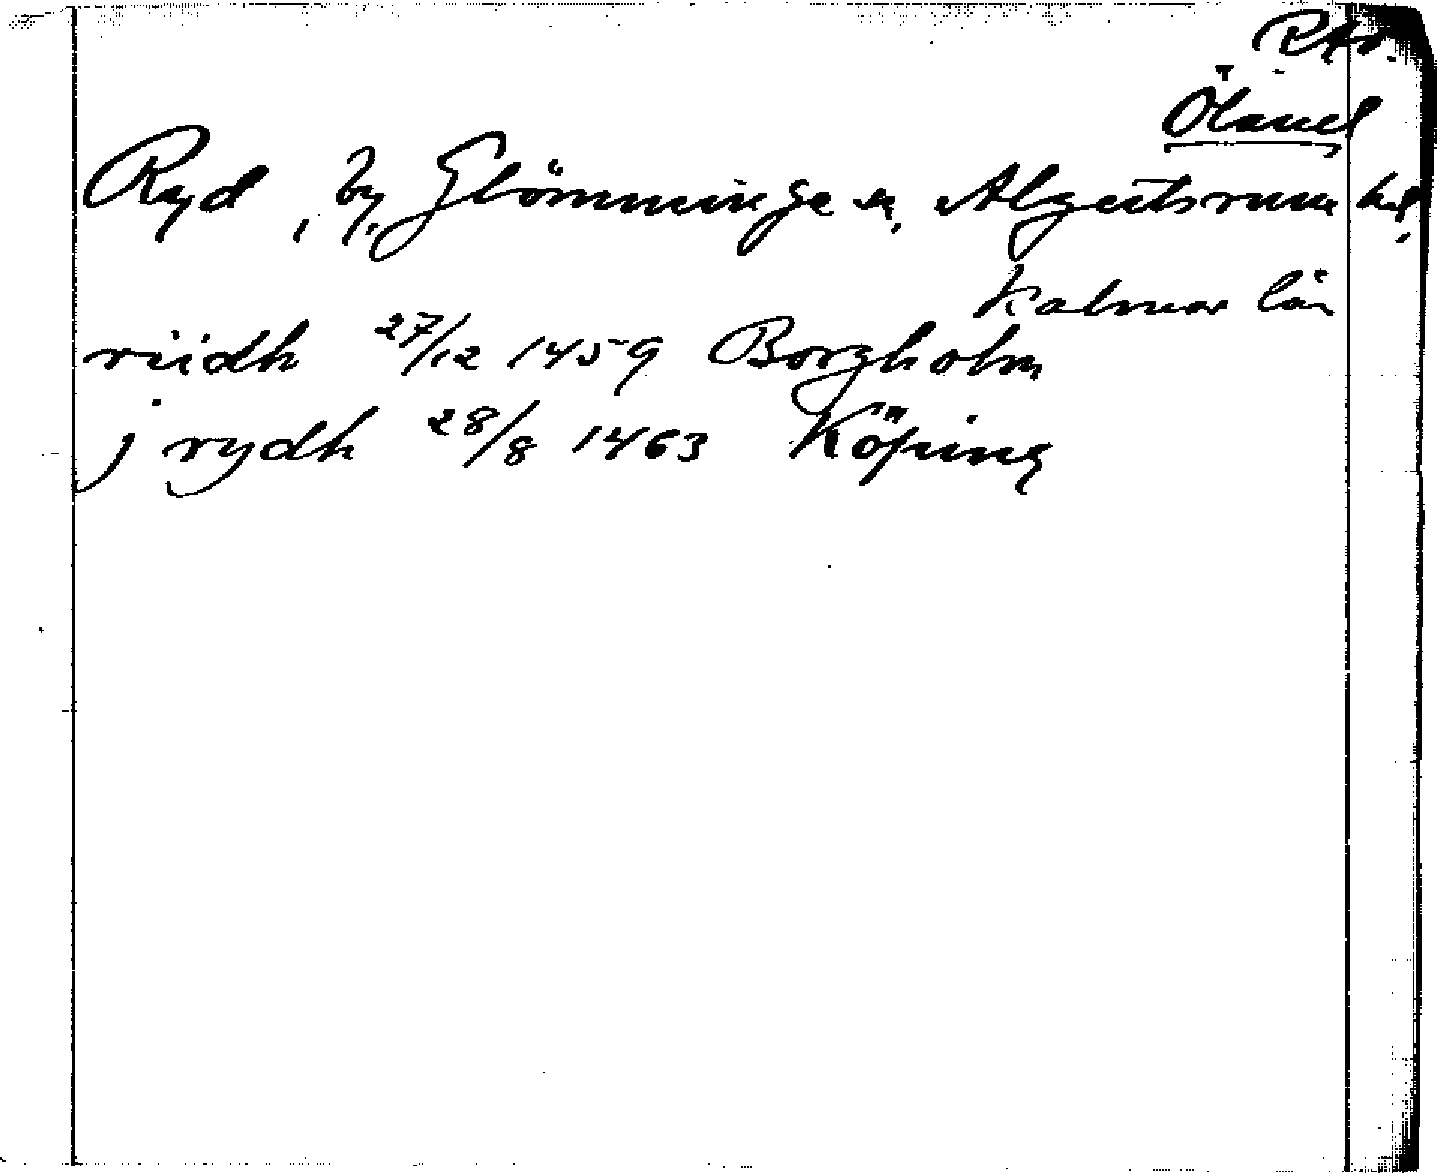 Öland
Ryd, by, Glömminge sn, Algutsrum hd,
Kalmar län
riidh 27/12 1459 Borgholm
j rydh 28/8 1463 Köping